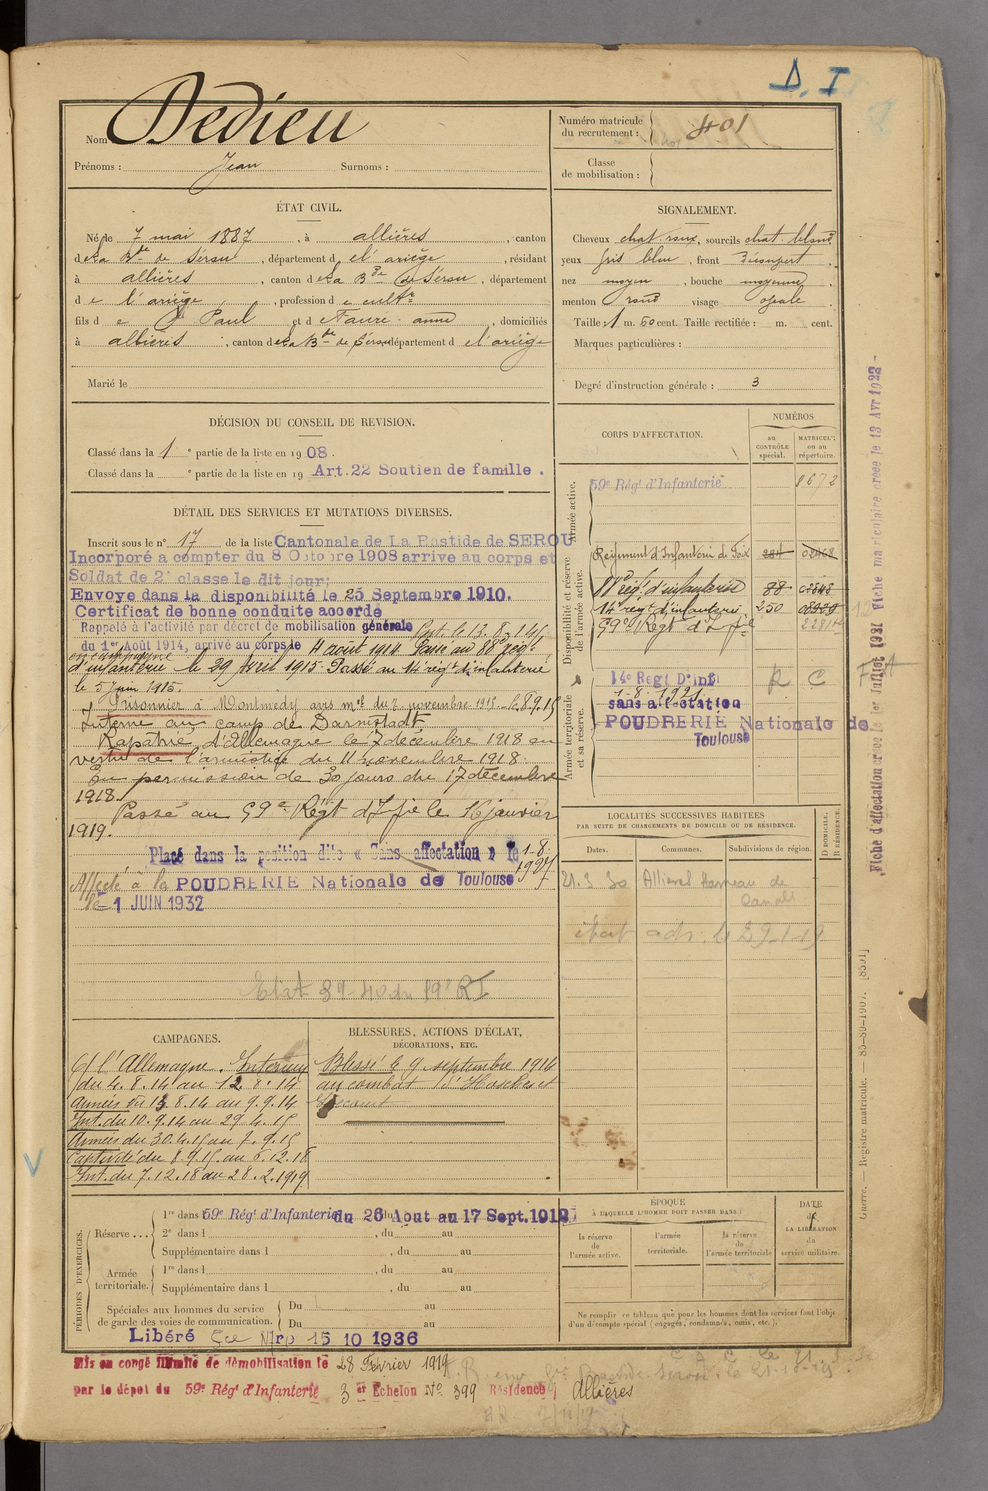 D. I
Nom Dedieu
Prénoms : Jean Surnoms :
Numéro matricule
du recrutement : 401
Classe
de mobilisation :
ÉTAT CIVIL.
Né le 7 mai 1887, à allières, canton
de La Bde de Sérou, département de l'ariège, résidant
à allières, canton de La Bde de Sérou, département
de l'ariège, profession de cultr
fils de Paul et de Faure anne, domiciliés
à allières, canton de La Bde de Sérou département de l'ariège
Marié le
SIGNALEMENT.
Cheveux chat. roux, sourcils chat. blond
yeux gris bleu, front découvert,
nez moyen, bouche moyenne,
menton rond visage ovale
Taille : 1 m. 50 cent. Taille rectifiée : m. cent.
Marques particulières :
Degré d'instruction générale : 3
DÉCISION DU CONSEIL DE REVISION.
Classé dans la 1e partie de la liste en 1908.
Classé dans la e partie de la liste en 19 Art. 22 Soutien de famille.
DÉTAIL DES SERVICES ET MUTATIONS DIVERSES.
Inscrit sous le n° 17 de la liste Cantonale de La Bastide de SEROU
Incorporé a compter du 8 Octobre 1908 arrive au corps et
Soldat de 2e classe le dit jour;
Envoye dans la disponibilité le 25 Septembre 1910.
Certificat de bonne conduite accorde
Rappelé à l'activité par décret de mobilisation générale
du 1er Août 1914, arrivé au corps le 4 août 1914. Passé au 88e rég.
en campagne
d'infanterie le 29 Avril 1915. Passé au 14e régt d'infanterie
le 5 juin 1915.
Prisonnier à Montmédy avis mel du 7 novembre 1915 - le 8.9.15
Interné au camp de Darmstadt
Rapatrié d'Allemagne le 7 décembre 1918 en
vertu de l'armistice du 11 novembre 1918.
En permission de 30 jours du 17 décembre
1918.
Passé au 59e Régt d'Ifie le 16 janvier
1919.
Placé dans la position dite « Sans affectation » le 1-8-1927
Affecté à la POUDRERIE Nationale de Toulouse
le 1 JUIN 1932
Etat 39-40 du 59e RI
CORPS D'AFFECTATION.
NUMÉROS
au
CONTRÔLE
spécial.
MATRICULE
ou au
répertoire.
Armée active.
59e Régt d'Infanterie 1672
Disponibilité et réserve
de l'armée active.
Régiment d'Infanterie de Foix
88e régt d'infanterie 88
14e regt d'infanterie 250
59e Régt d'Ifie
Armée territoriale
et sa réserve.
14e Regt D'Inf. R C
1-8-1921
sans affectation
POUDRERIE Nationale de
Toulouse
LOCALITÉS SUCCESSIVES HABITÉES
PAR SUITE DE CHANGEMENTS DE DOMICILE OU DE RÉSIDENCE.
Dates. Communes. Subdivisions de région.
D DOMICILE.
R RÉSIDENCE.
21.3 30 Allières Hameau de
CAMPAGNES.
C/ l'Allemagne. Intérieur
du 4.8.14 au 12.8.14
Armées du 13.8.14 au 9.9.14
Int. du 10.9.14 au 29 4.15
Armées du 30.4.15 au 7.9.15
Captivité du 8.9.15 au 6.12.18
Int. du 7.12.18 au 28.2.1919
BLESSURES, ACTIONS D'ÉCLAT,
DÉCORATIONS, ETC.
Blessé le 9 septembre 1914
au combat
PÉRIODES D'EXERCICES.
Réserve ...
1re dans l 59e Régt d'Infanterie du 26 Aout au 17 Sept. 1912
2e dans l , du au
Supplémentaire dans l , du au
Armée
territoriale.
1re dans l , du au
Supplémentaire dans l , du au
Spéciales aux hommes du service
de garde des voies de communication.
Du au
Du au
ÉPOQUE
À LAQUELLE L'HOMME DOIT PASSER DANS :
la réserve
de
l'armée active.
l'armée
territoriale.
la réserve
de
l'armée territoriale
DATE
de
LA LIBÉRATION
du
service militaire.
Ne remplir ce tableau que pour les hommes dont les services font l'objet
d'un décompte spécial (engagés, condamnés, omis, etc.).
Libéré Sce Mre 15 10 1936
Mis en congé illimité de démobilisation le 28 Février 1919
par le dépot du 59e Régt d'Infanterie 3er Echelon No 399 Résidence Allières
Fiche d'affectation créée le 1er Juillet 1921 Fiche matriculaire créée le 13 Avr 1922 -
Guerre. — Registre matricule. — 85-89-1907. [8501]